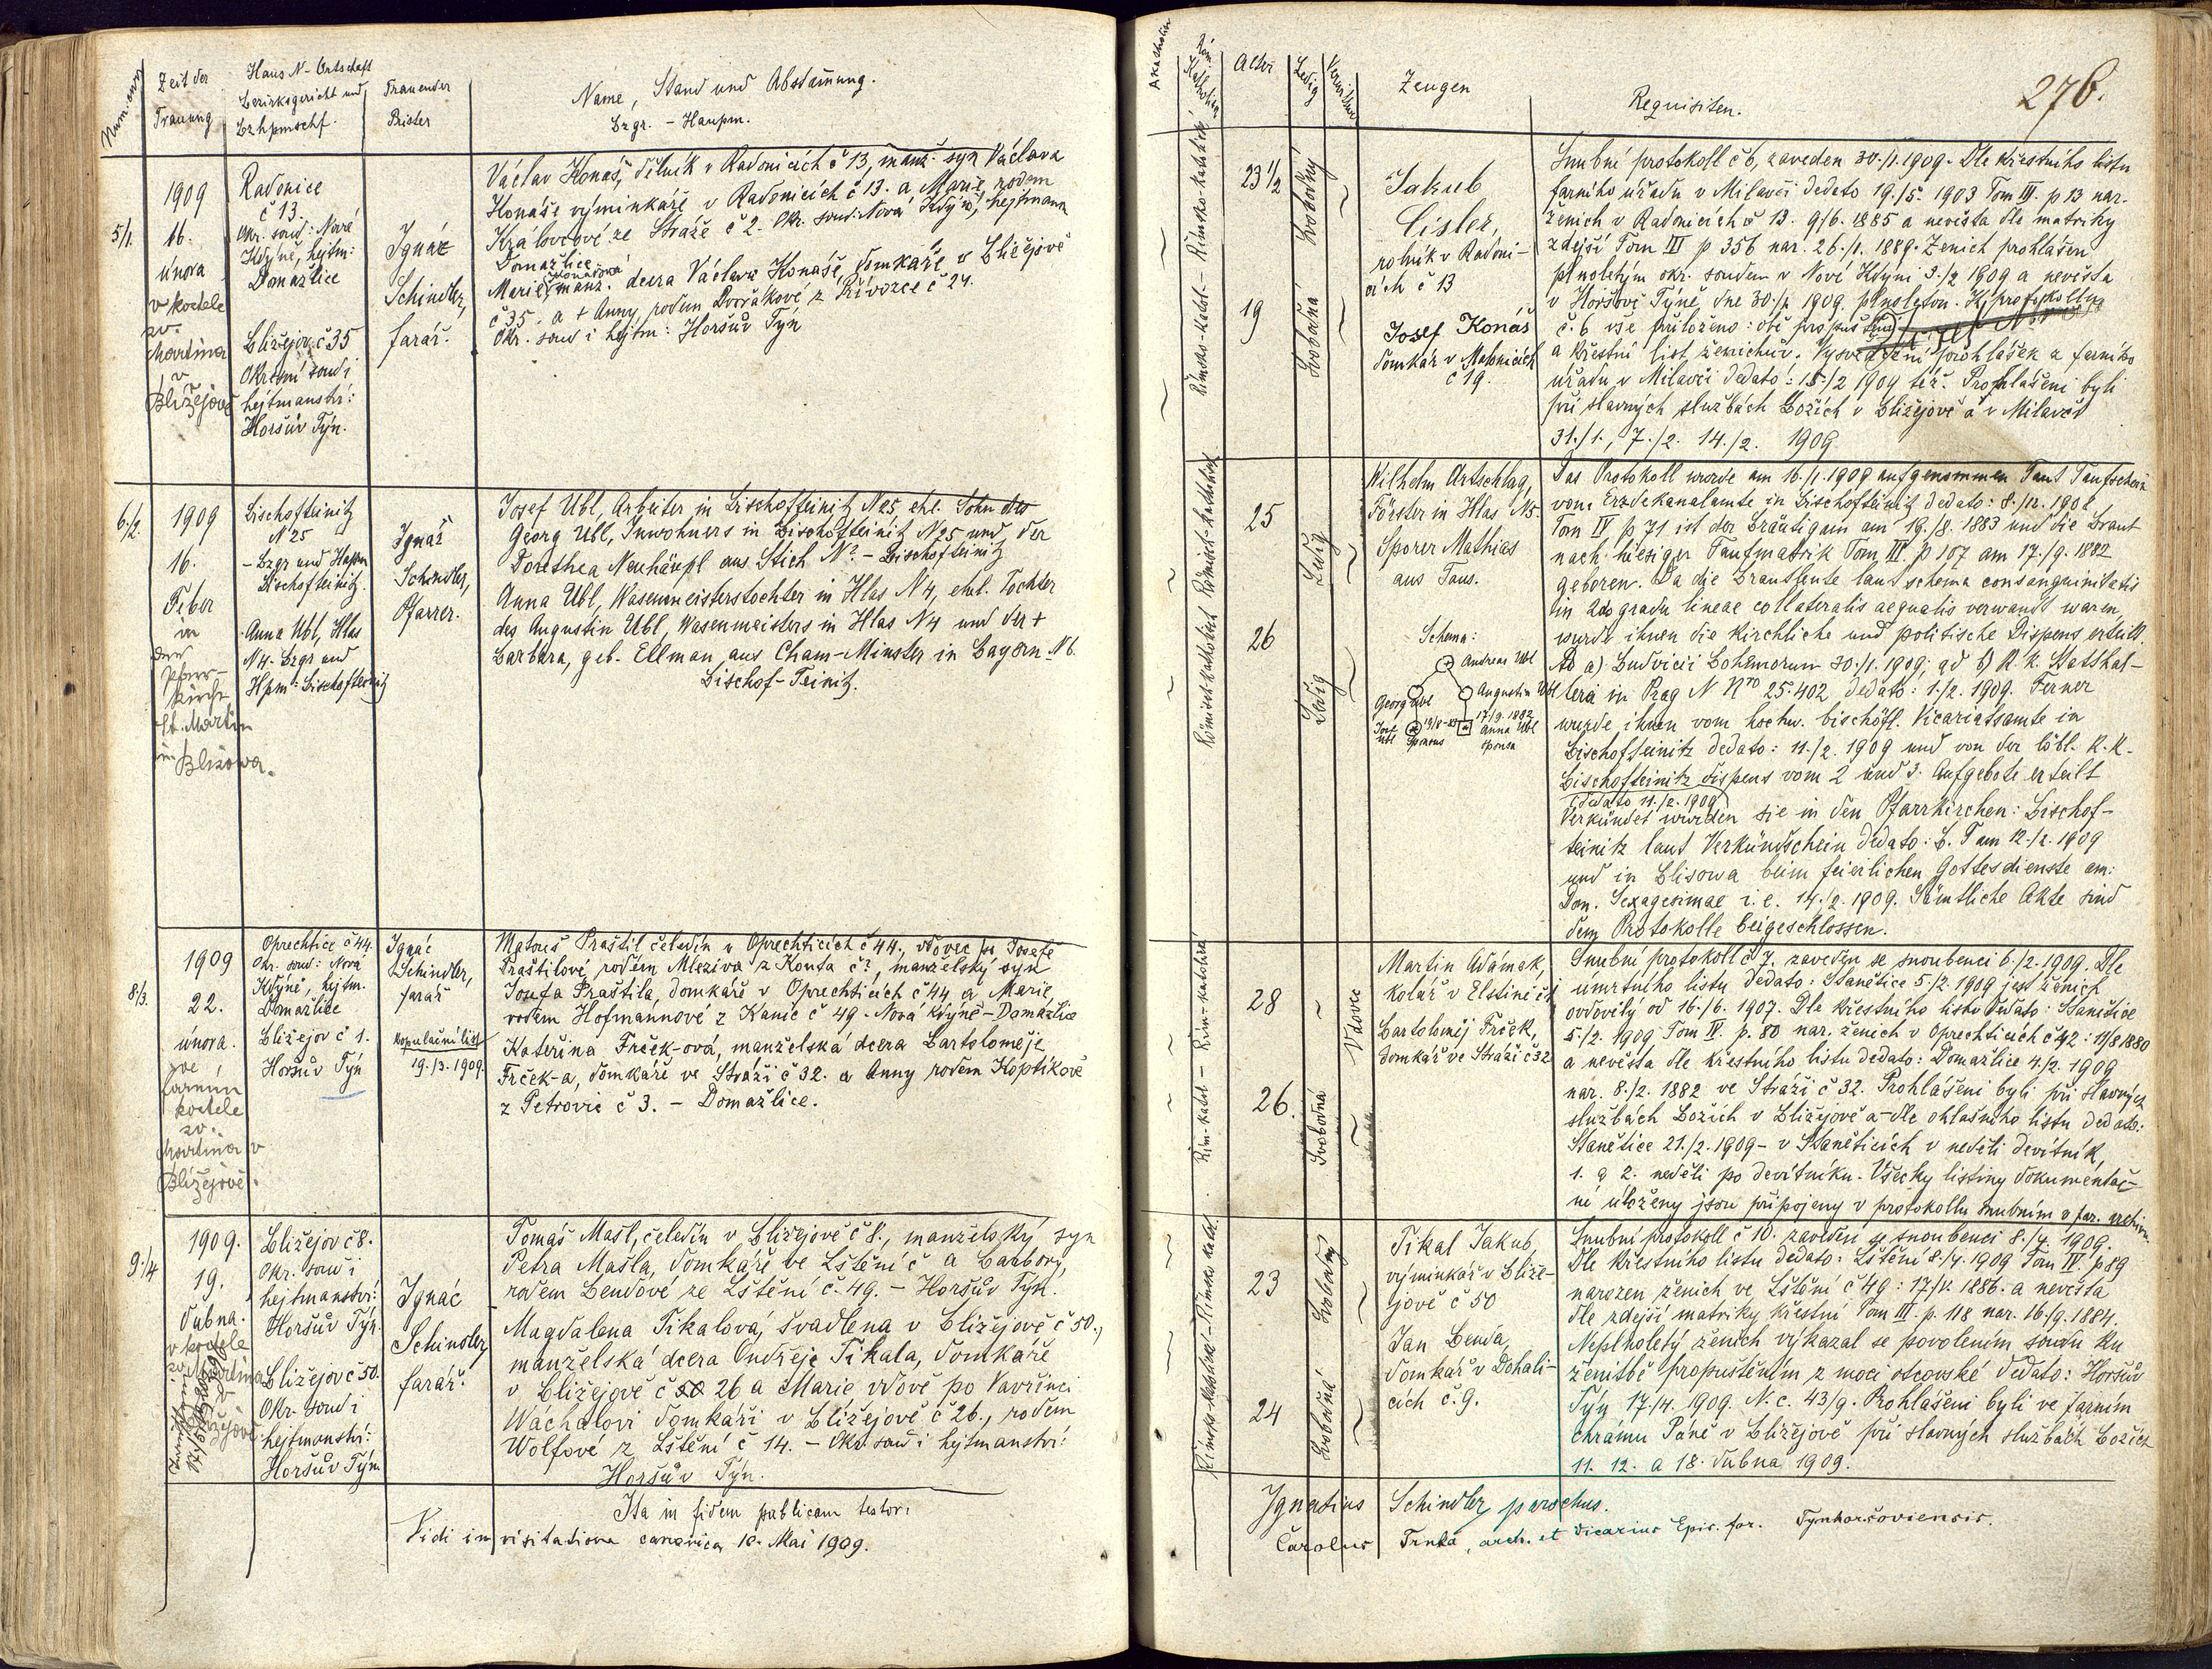 Num. curr.
Zeit der
Trauung
Haus N - Ortschaft
Bezirksgericht und
Bzhpmschf.
Trauender
Priester
Name, Stand und Abstammung.
Bzgr. - Haupm.
5/1.
1909
16.
února
v kostele
sv.
Martina
v
Blížejově
Radonice
č 13.
Okr. soud: Nová
Kdyně, hejtm:
Domažlice
Blížejov č 35
Okresní soud i
hejtmanství:
Horšův Týn.
Ignác
Schindler,
farář.
Václav Konáš, dělník v Radonicích č 13, manž. syn Václava
Konáše výminkáře v Radonicích č 13. a Marie, rodem
Královcové ze Stráže č 2. Okr. soud: Nová Kdyně, hejtmann
Domažlice.
Marie Konášová manž. dcera Václava Konáše, domkáře v Blížejově
č 35. a + Anny, rodem Dvořákové z Křivorce č 24.
Okr. soud i hejtm: Horšův Týn
6./2.
1909
16.
Feber
in
der
Pfarr-
kirche
St. Martin
in Blisowa.
Bischofteinitz
N 25
- Bzgr und Hptm
Bischofteinitz.
Anna Ubl, Hlas
N 4. Bzgr und
Hpm: Bischofteinitz
Ignaz
Schindler,
Pfarrer.
Josef Ubl, Arbeiter in Bischofteinitz N 25, ehl. Sohn des
Georg Ubl, Inwohners in Bischofteinitz N 25 und der
Dorothea Neuhäupl aus Stich N? - Bischofteinitz
Anna Ubl, Wasenmeisterstochter in Hlas N 4, ehel. Tochter
des Augustin Ubl, Wasenmeisters in Hlas N 4 und der +
Barbara, geb. Ellman aus Cham-Münster in Bayern N 6.
Bischof-Teinitz.
8./3.
1909
22.
února.
ve
farním
kostele
sv.
Martina v
Blížejově.
Oprechtice č 44.
Okr. soud: Nová
Kdyně, hejtm.
Domažlice
Blížejov č 1.
Horšův Týn
Ignác
Schindler,
farář
Kopulační list
19./3. 1909.
Matouš Praštil čeledín v Oprechticích č 44, vdovec po Josefě
Praštilové rodem Mleziva z Kouta č?, manželský syn
Josefa Praštila, domkáře v Oprechticích č 44 a Marie
rodem Hofmannové z Kanic č 49 - Nová Kdyně - Domažlice
Kateřina Frček-ová, manželská dcera Bartoloměje
Frček-a, domkáře ve Stráži č 32. a Anny rodem Koptíkové
z Petrovic č 3. - Domažlice.
9./4
1909.
19.
dubna.
v kostele
sv. Martina
v
Blížejově
Blížejov č 8.
Okr. soud i
hejtmanství:
Horšův Týn.
Blížejov č 50.
Okr. soud i
hejtmanství:
Horšův Týn
Ignác
Schindler,
farář.
Tomáš Mašl, čeledín v Blížejově č 8., manželský syn
Petra Mašla, domkáře ve Lštění č a Barbory,
rodem Bendové ze Lštění č. 49. - Horšův Týn.
Magdalena Tikalová, švadlena v Blížejově č 50.,
manželská dcera Ondřeje Tikala, domkáře
v Blížejově č 50 26 a Marie vdově po Vavřinci
Wáchalovi domkáři v Blížejově č 26., rodem
Wolfové z Lštění č 14. - Okr. soud i hejtmanství:
Horšův Týn.
Ita in fidem publicam testor:
Vidi in visitatione canonica 10. Mai 1909.
Akatholisch
Röm. Katholisch
Alter
Ledig
Verwitwet
Zeugen
Requisiten.
276.
Římsko-kathol. - Římsko-katolický
23 1/2
19
Svobodný
Svobodná
Jakub
Císler,
rolník v Radoni-
cích č 13
Josef Konáš
domkář v Mašovicích
č 19.
Snubní protokoll č 6, zaveden 30./1. 1909. Dle křestního listu
farního úřadu v Milavči dedato 19./5. 1903 Tom III. p 13 nar.
ženich v Radonicích č 13. 9/6. 1885 a nevěsta dle matriky
zdejší Tom III p 356 nar. 26./1. 1889. Ženich prohlášen
plnoletým okr. soudem v Nové Kdyni 3./2 1909 a nevěsta
v Horšově Týně, dne 30./1. 1909. plnoletou. K protokollu
č. 6 vše přiloženo: obě propuštění
a křestní list ženichův. Vysvědčení prohlášek z farního
úřadu v Milavči dedato: 15./2 1909 též. Prohlášeni byli
při slavných službách Božích v Blížejově a v Milavči
31./1., 7./2. 14./2. 1909.
Römisch-katholisch Römisch-katholisch
25
26
Ledig
Ledig
Wilhelm Artschlag,
Förster in Hlas N 5.
Sporer Mathias
aus Taus.
Schema:
Andreas Ubl
Georg Ubl
Augustin Ubl
Josef Ubl
19/8 - 83
sponsus
17/9. 1882
Anna Ubl
sponsa
Das Protokoll wurde am 16./1. 1909 aufgenommen. Laut Taufschein
vom Erzdekanalamte in Bischofteinitz dedato: 8./12. 1908
Tom IV p 71 ist der Bräutigam am 19./8. 1883 und die Braut
nach hiesiger Taufmatrik Tom III p 107 am 17./9. 1882
geboren. Da die Brautleute laut schema consanguinitatis
in 2do gradu lineae collateralis aequalis verwandt waren,
wurde ihnen die kirchliche und politische Dispens erteilt.
Ad a) Budvicii Bohemorum 30./1. 1909; ad b) K. k. Statthal-
terei in Prag N Nro 25.402 dedato: 1./2. 1909. Ferner
wurde ihnen vom hochw. bischöfl. Vicariatsamte in
Bischofteinitz dedato: 11./2. 1909 und von der löbl. K. K.
Bischofteinitz Dispens vom 2 und 3. Aufgebote erteilt
(dedato 11./2. 1909)
Verkündet wurden sie in den Pfarrkirchen: Bischof-
teinitz laut Verkündschein dedato: B. T am 12./2. 1909
und in Blisowa beim feierlichen Gottesdienste am:
Dom. Sexagesimae i. e. 14./2. 1909. Sämtliche Akte sind
dem Protokolle beigeschlossen.
Řím-katol - Řím-katolická
28
26.
Svobodná
Vdovec
Martin Adámek,
kolář v Elstině č 1
Bartoloměj Frček,
domkář ve Stráži č 32
Snubní protokoll č 7. zaveden se snoubenci 6./2. 1909. Dle
úmrtního listu dedato: Staňětice 5./2. 1909 jest ženich
ovdovělý od 16./6. 1907. Dle křestního listu dedato: Staňětice
5./2. 1909 Tom IV. p. 80 nar. ženich v Oprechticích č 42: 11/8 1880
a nevěsta dle křestního listu dedato: Domažlice 4./2. 1909
nar. 8./2. 1882 ve Stráži č 32. Prohlášeni byli při slavných
službách Božích v Blížejově a - dle ohlašního listu dedato:
Staňětice 21./2. 1909 - v Staněticích v neděli devítník,
1. a 2. neděli po devítníku. Všecky listiny dokumentač-
ní uloženy jsou připojeny v protokollu snubním v far. archivu.
Římsko-katolická - Římsko katol.
23
24
Svobodný
Svobodná
Tikal Jakub,
výminkář v Blíže-
jově č 50
Jan Benda,
domkář v Dohali-
cích č. 9.
Snubní protokoll č 10. zaveden se snoubenci 8./4. 1909.
Dle křestního listu dedato: Lštění 8./4. 1909 Tom IV. p 89
narozen ženich ve Lštění č 49: 17/V. 1886. a nevěsta
dle zdejší matriky křestní Tom III. p. 118 nar. 16./9. 1884.
Neplnoletý ženich výkázal se povolením soudu ku
ženitbě propuštěním z moci otcovské dedato: Horšův
Týn 17./4. 1909. N. c. 43/9. Prohlášeni byli ve farním
chrámu Páně v Blížejově při slavných službách Božích
11. 12. a 18. dubna 1909.
Ignatius Schindler parochus.
Carolus Trnka, arch. et Vicarius Epis. for. Tynhorsoviensis.